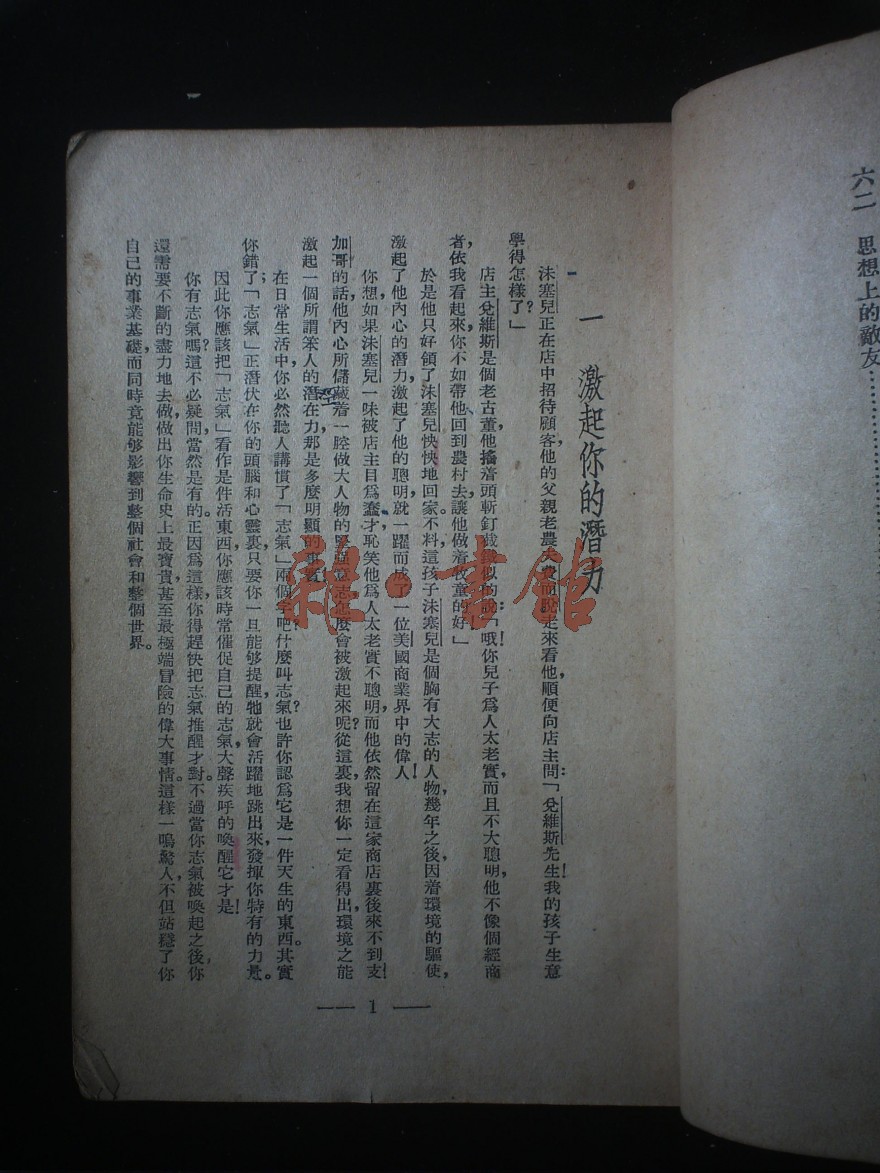 六二　思想上的敵友…………
一　激起你的潛力
沬塞兒正在店中招待顧客，他的父親老農夫費而說走來看他，順便向店主問：「兌維斯先生！我的孩子生意
學得怎樣了？」
店主兌維斯是個老古董，他搖着頭斬釘截鐵似的說：「哦！你兒子爲人太老實，而且不大聰明，他不像個經商
者，依我看起來，你不如帶他回到農村去，讓他做着牧童的好！」
於是他只好領了沬塞兒怏怏地回家。不料這孩子沬塞兒是個胸有大志的人物，幾年之後，因着環境的驅使，
激起了他內心的潛力，激起了他的聰明，就一躍而成了一位美國商業界中的偉人！
你想，如果沬塞兒一味被店主目爲蠢才，恥笑他爲人太老實不聰明，而他依然留在這家商店裏，後來不到支
加哥的話，他內心所儲藏着一腔做大人物的堅強意志，怎麼會被激起來呢？從這裏，我想你一定看得出，環境之能
激起一個所謂笨人的潛在力，那是多麼明顯的事實！
在日常生活中，你必然聽人講慣了「志氣」兩個字吧？什麼叫志氣？也許你認爲它是一件天生的東西。其實
你錯了；「志氣」正潛伏在你的頭腦和心靈裏，只要你一旦能够提醒牠，就會活躍地跳出來，發揮你特有的力量。
因此你應該把「志氣」看作是件活東西，你應該時常催促自己的志氣，大聲疾呼的喚醒它才是！
你有志氣嗎？這不必疑問，當然是有的。正因爲這樣，你得趕快把志氣推醒才對。不過當你志氣被喚起之後，你
還需要不斷的盡力地去做，做出你生命史上最寶貴甚至最極端冒險的偉大事情。這樣一鳴驚人，不但站穩了你
自己的事業基礎，而同時竟能够影響到整個社會和整個世界。
— 1 —
雜·書館